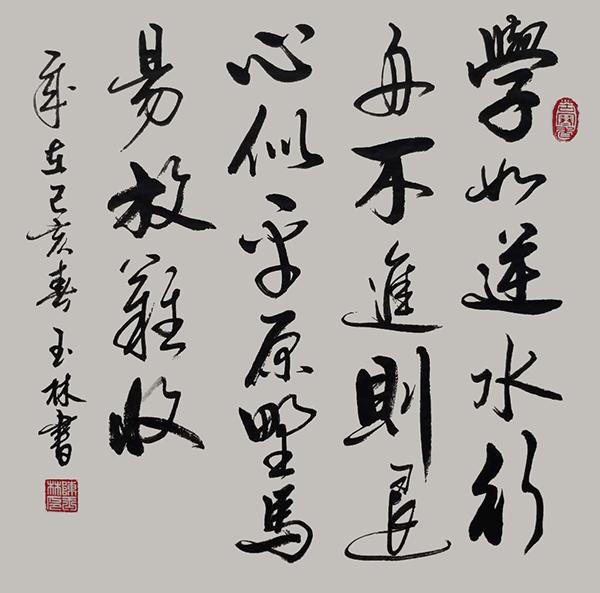 學如逆水行
舟不進則退
心似平原野馬
易放難收
歲在己亥春玉林書